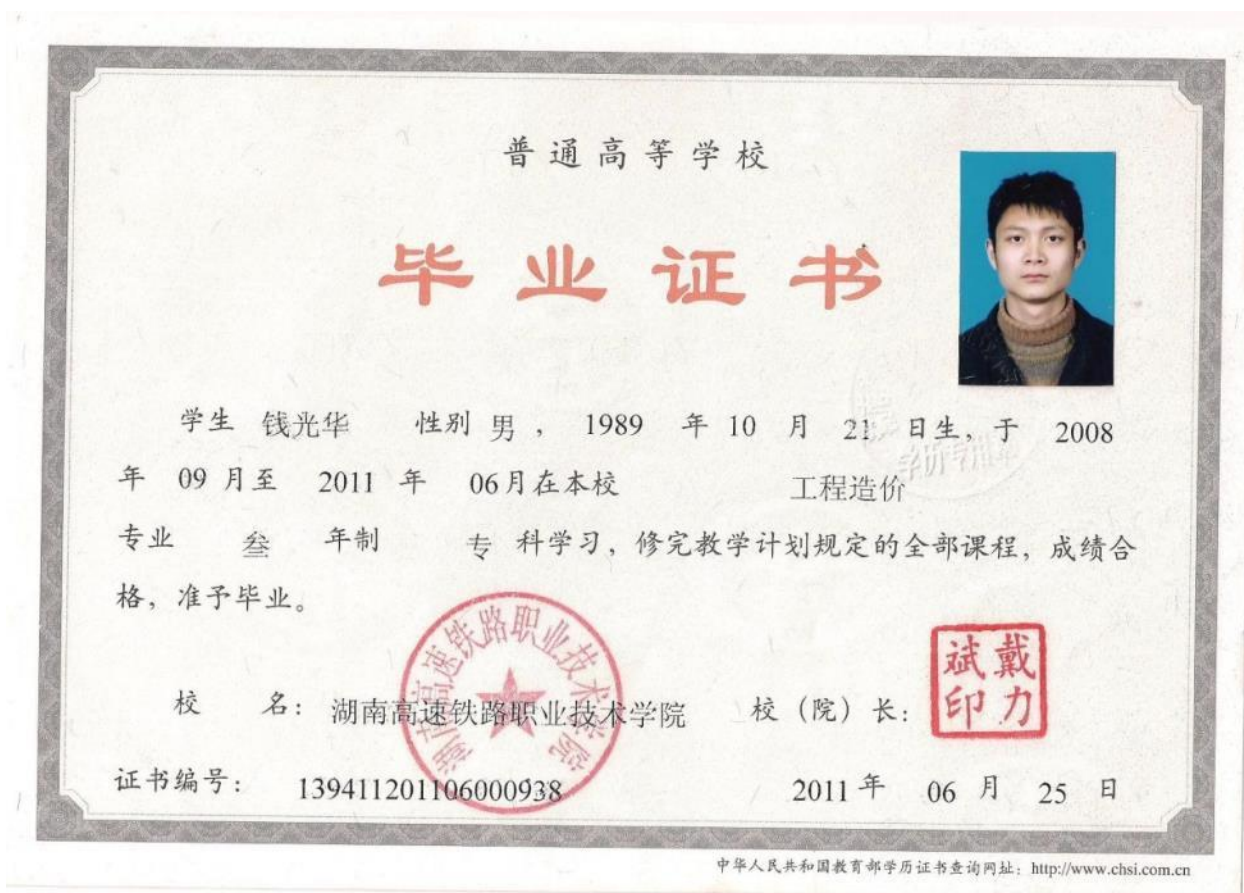 普通高等学校
毕业证书
学生 钱光华 性别 男 , 1989 年 10 月 21 日生, 于 2008
年 09 月至 2011 年 06月在本校 工程造价
专业 叁 年制 专 科学习, 修完教学计划规定的全部课程, 成绩合
格, 准予毕业。
湖南高速铁路职业技术学院
戴力斌印
校 名: 湖南高速铁路职业技术学院 校 (院) 长:
证书编号: 139411201106000938 2011 年 06 月 25 日
中华人民共和国教育部学历证书查询网址: http://www.chsi.com.cn